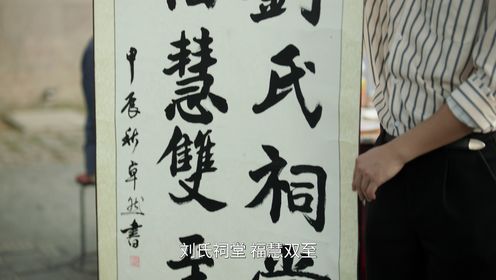 劉氏祠堂
福慧雙至
甲辰秋卓然書
刘氏祠堂 福慧双至